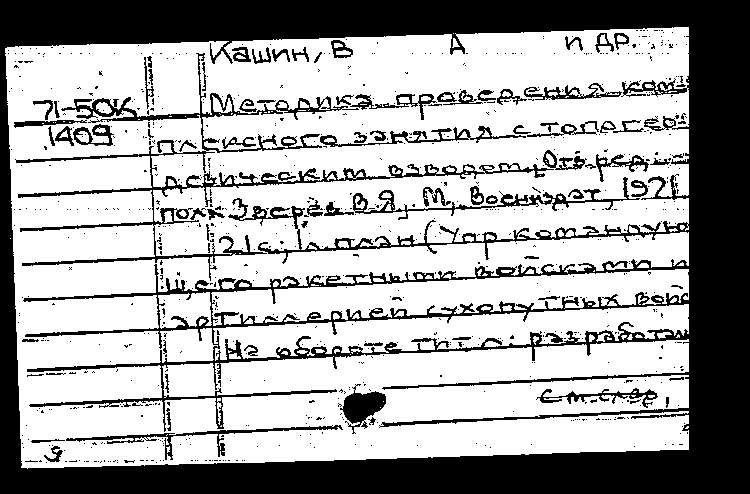 Кашин, В А и др.
71-50К Методика проведения ком-
1409 плексного занятия с топогео-
дезическим взводом. Отв ред.
полк Зверев В.Я., М, Воениздат, 1971
21с; 1л.план (Упр командую
щего ракетными войсками и
артиллерией сухопутных войс
На обороте тит л: разработан
См.след.